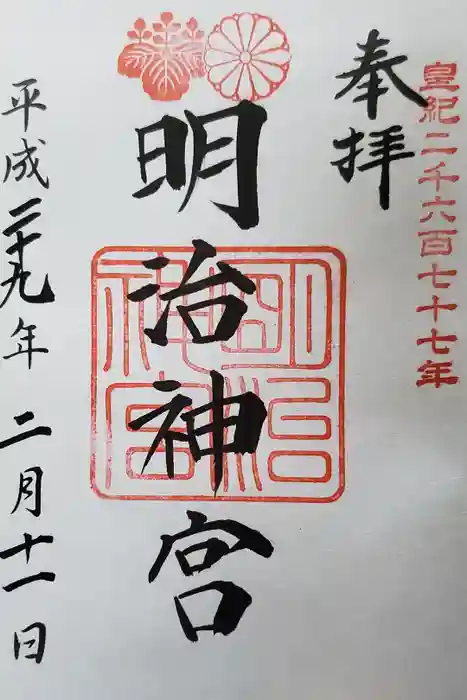 皇紀二千六百七十七年
奉拝
明治神宮
明治神宮
平成二十九年二月十一日